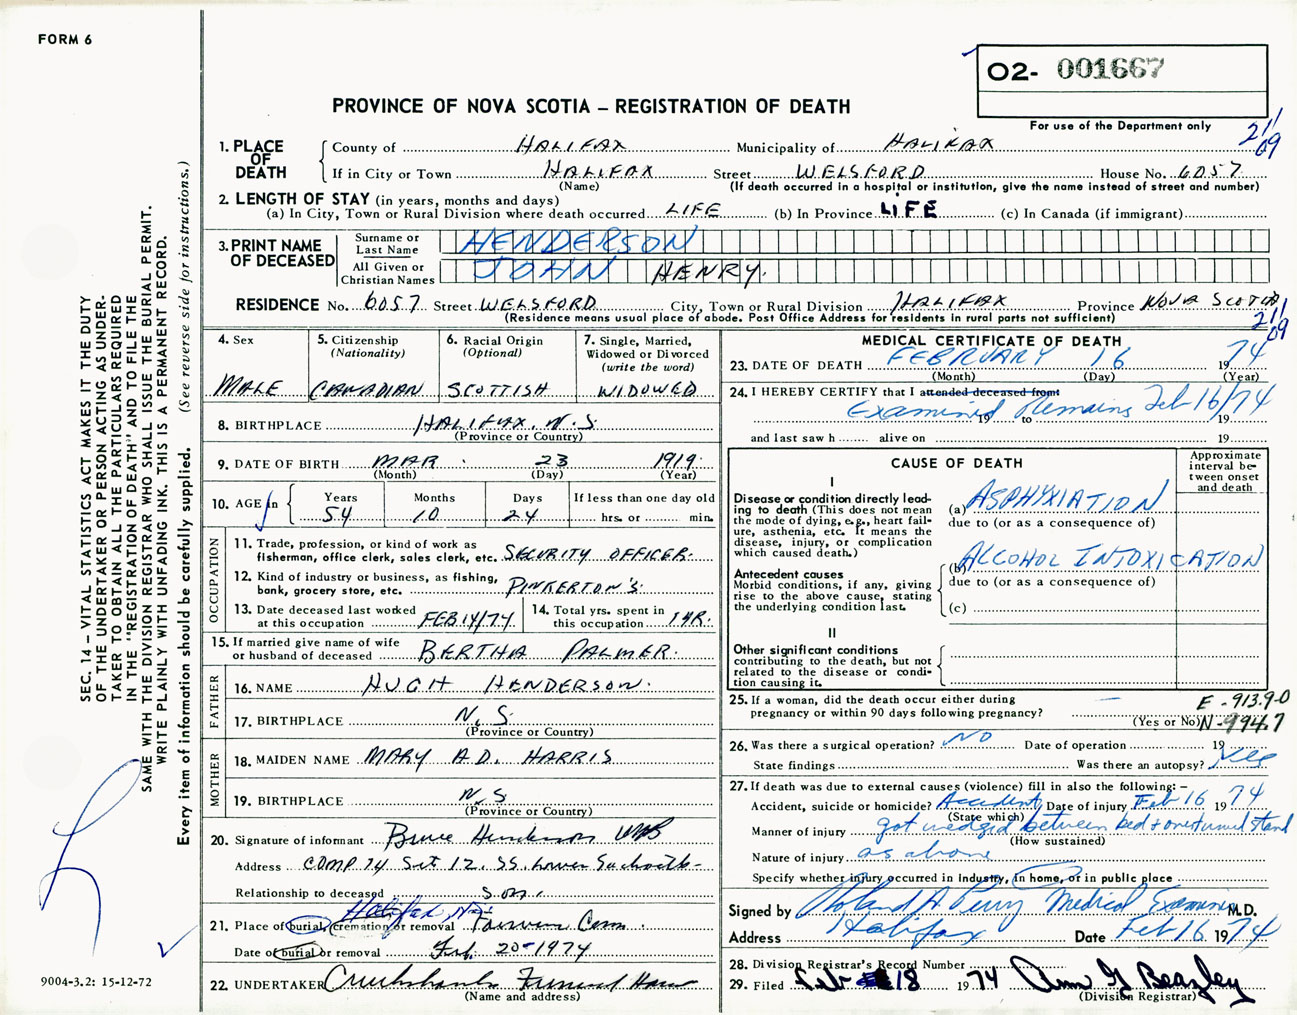 FORM 6
O2- 001667
PROVINCE OF NOVA SCOTIA – REGISTRATION OF DEATH
For use of the Department only
211
09
1. PLACE OF DEATH
County of HALIFAX Municipality of HALIFAX
If in City or Town HALIFAX Street WELSFORD House No. 6057
(Name) (If death occurred in a hospital or institution, give the name instead of street and number)
2. LENGTH OF STAY (in years, months and days)
(a) In City, Town or Rural Division where death occurred LIFE (b) In Province LIFE (c) In Canada (if immigrant)
3. PRINT NAME OF DECEASED
Surname or Last Name HENDERSON
All Given or Christian Names JOHN HENRY.
RESIDENCE No. 6057 Street WELSFORD City, Town or Rural Division HALIFAX Province NOVA SCOTIA
(Residence means usual place of abode. Post Office Address for residents in rural parts not sufficient)
211
09
4. Sex
MALE
5. Citizenship (Nationality)
CANADIAN
6. Racial Origin (Optional)
SCOTTISH
7. Single, Married, Widowed or Divorced (write the word)
WIDOWED
8. BIRTHPLACE HALIFAX. N.S
(Province or Country)
9. DATE OF BIRTH MAR. 23 1919
(Month) (Day) (Year)
10. AGE in
Years Months Days If less than one day old
54 10 24 hrs. or min.
OCCUPATION
11. Trade, profession, or kind of work as
fisherman, office clerk, sales clerk, etc. SECURITY OFFICER.
12. Kind of industry or business, as fishing,
bank, grocery store, etc. PINKERTON'S
13. Date deceased last worked
at this occupation FEB 14/74
14. Total yrs. spent in
this occupation 1 YR.
15. If married give name of wife
or husband of deceased BERTHA PALMER.
FATHER
16. NAME HUGH HENDERSON.
17. BIRTHPLACE N.S
(Province or Country)
MOTHER
18. MAIDEN NAME MARY A.D. HARRIS
19. BIRTHPLACE N.S
(Province or Country)
20. Signature of informant Bruce Henderson
Address COMP. 74 Sit 12. SS. Lower
Relationship to deceased son.
Halifax, N.S.
21. Place of burial, cremation or removal Fairview Cem.
Date of burial or removal Feb. 20-1974
22. UNDERTAKER Cruikshanks Funeral Home
(Name and address)
MEDICAL CERTIFICATE OF DEATH
23. DATE OF DEATH FEBRUARY 16 1974
(Month) (Day) (Year)
24. I HEREBY CERTIFY that I attended deceased from:
Examined Remains Feb 16/74
19 to 19
and last saw h alive on 19
CAUSE OF DEATH
Approximate interval between onset and death
I
Disease or condition directly leading to death (This does not mean the mode of dying, e.g., heart failure, asthenia, etc. It means the disease, injury, or complication which caused death.)
(a) ASPHYXIATION
due to (or as a consequence of)
Antecedent causes
Morbid conditions, if any, giving rise to the above cause, stating the underlying condition last.
(b) ALCOHOL INTOXICATION
due to (or as a consequence of)
(c)
II
Other significant conditions
contributing to the death, but not related to the disease or condition causing it.
25. If a woman, did the death occur either during
pregnancy or within 90 days following pregnancy? —
(Yes or No)
E -913.9-0
N-994.7
26. Was there a surgical operation? NO Date of operation 19
State findings Was there an autopsy? Yes
27. If death was due to external causes (violence) fill in also the following:–
Accident, suicide or homicide? Accident Date of injury Feb 16 1974
(State which)
Manner of injury got wedged between bed + overturned stand
(How sustained)
Nature of injury as above
Specify whether injury occurred in industry, in home, or in public place
Signed by Roland A Perry Medical Examiner M.D.
Address Halifax Date Feb 16 1974
28. Division Registrar's Record Number
29. Filed Feb 18 1974 Ann G Beazley
(Division Registrar)
SEC. 14 – VITAL STATISTICS ACT MAKES IT THE DUTY
OF THE UNDERTAKER OR PERSON ACTING AS UNDER-
TAKER TO OBTAIN ALL THE PARTICULARS REQUIRED
IN THE "REGISTRATION OF DEATH" AND TO FILE THE
SAME WITH THE DIVISION REGISTRAR WHO SHALL ISSUE THE BURIAL PERMIT.
WRITE PLAINLY WITH UNFADING INK. THIS IS A PERMANENT RECORD.
Every item of information should be carefully supplied. (See reverse side for instructions.)
9004-3.2: 15-12-72